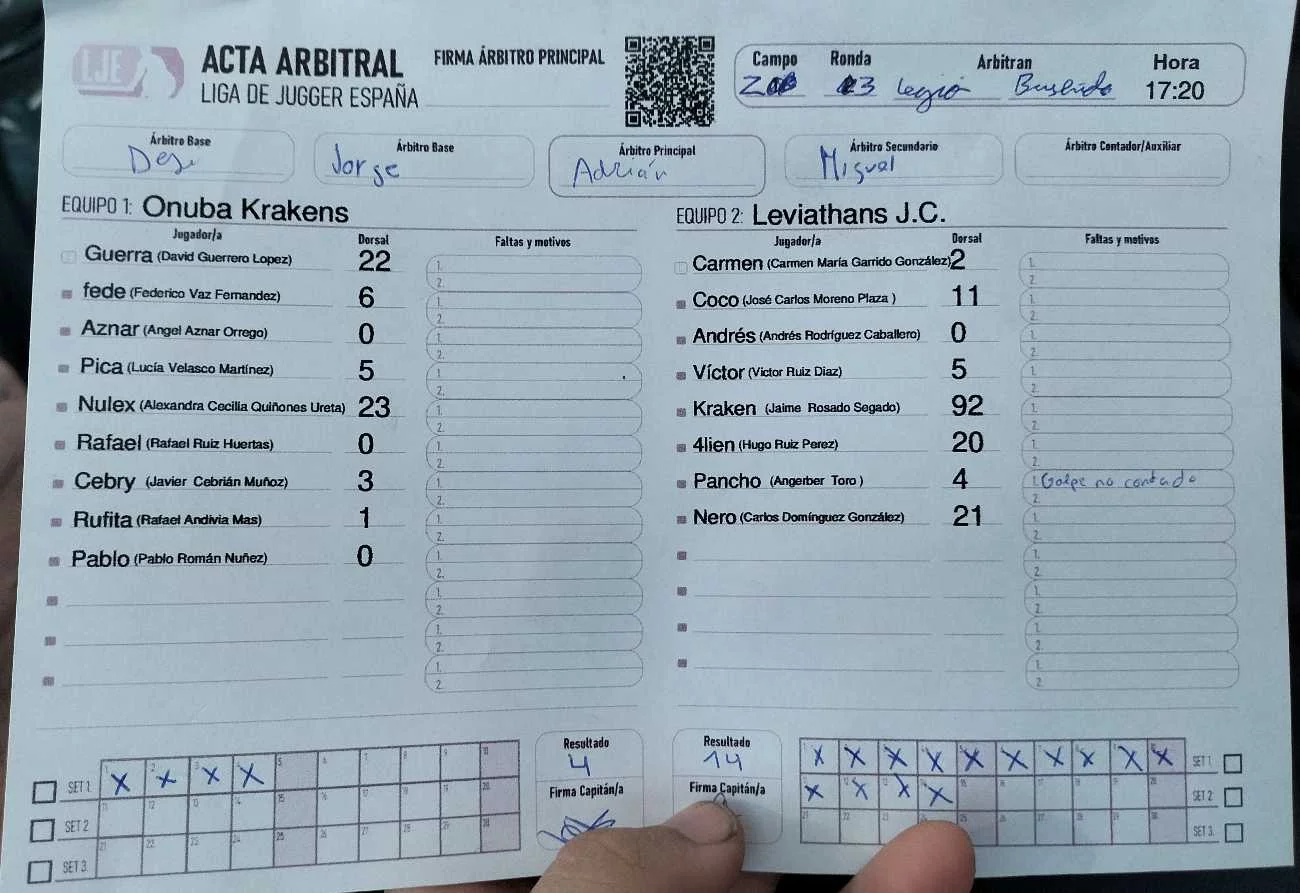 LJE
ACTA ARBITRAL
LIGA DE JUGGER ESPAÑA
FIRMA ÁRBITRO PRINCIPAL
Campo Ronda Arbitran Hora
3 Legión Bushido 17:20
Árbitro Base Árbitro Base Árbitro Principal Árbitro Secundario Árbitro Contador/Auxiliar
Desi Jorge Adrián Miguel
EQUIPO 1: Onuba Krakens
Jugador/a Dorsal Faltas y motivos
Guerra (David Guerrero Lopez) 22 1. 2.
fede (Federico Vaz Fernandez) 6 1. 2.
Aznar (Angel Aznar Orrego) 0 1. 2.
Pica (Lucía Velasco Martínez) 5 1. 2.
Nulex (Alexandra Cecilia Quiñones Ureta) 23 1. 2.
Rafael (Rafael Ruiz Huertas) 0 1. 2.
Cebry (Javier Cebrián Muñoz) 3 1. 2.
Rufita (Rafael Andivia Mas) 1 1. 2.
Pablo (Pablo Román Nuñez) 0 1. 2.
1. 2.
1. 2.
1. 2.
EQUIPO 2: Leviathans J.C.
Jugador/a Dorsal Faltas y motivos
Carmen (Carmen María Garrido González) 2 1. 2.
Coco (José Carlos Moreno Plaza ) 11 1. 2.
Andrés (Andrés Rodríguez Caballero) 0 1. 2.
Víctor (Victor Ruiz Diaz) 5 1. 2.
Kraken (Jaime Rosado Segado) 92 1. 2.
4lien (Hugo Ruiz Perez) 20 1. 2.
Pancho (Angerber Toro ) 4 1. Golpe no contado 2.
Nero (Carlos Domínguez González) 21 1. 2.
1. 2.
1. 2.
1. 2.
1. 2.
SET 1 X X X X 5 6 7 8 9 10
SET 2 11 12 13 14 15 16 17 18 19 20
SET 3. 21 22 23 24 25 26 27 28 29 30
Resultado
4
Firma Capitán/a
Resultado
14
Firma Capitán/a
X X X X X X X X X X SET 1
X X X X 15 16 17 18 19 20 SET 2
21 22 23 24 25 26 27 28 29 30 SET 3.